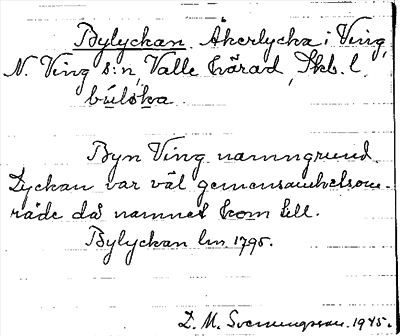 Bylyckan. Åkerlycka i Ving,
N. Ving s:n, Valle härad, Skb. l.
būlöka.
Byn Ving namngrund.
Lyckan var väl gemensamhetsom-
råde då namnet kom till.
Bylyckan lm. 1795.
D. M. Svenungsson. 1945.